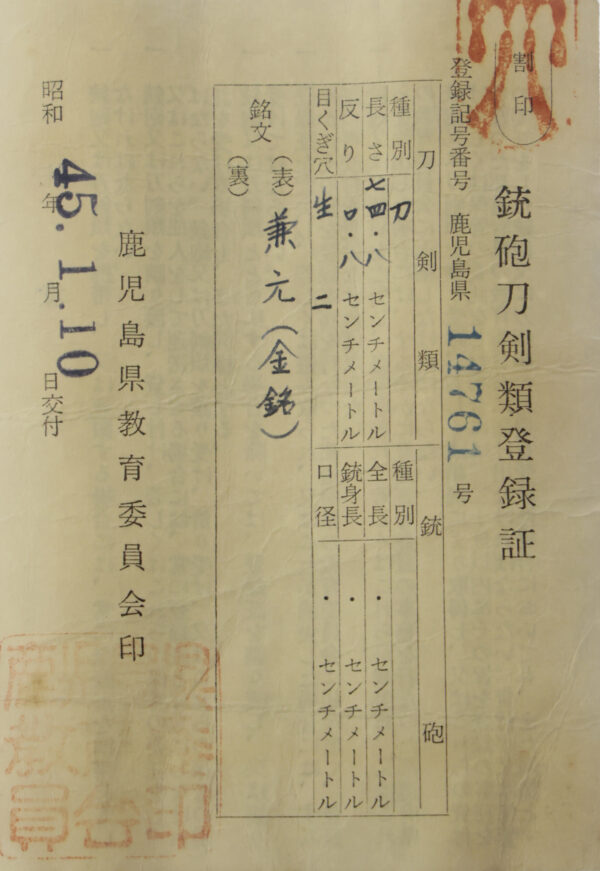 割印
銃砲刀剣類登録証
登録記号番号 鹿児島県 14761 号
刀剣類
種別 刀
長さ 七四・八 センチメートル
反り 〇・八 センチメートル
目くぎ穴 生 二
銃砲
種別
全長 ・ センチメートル
銃身長 ・ センチメートル
口径 ・ センチメートル
銘文 (表) 兼元(金銘)
(裏)
鹿児島県教育委員会印
昭和 45年 1.月 10日交付